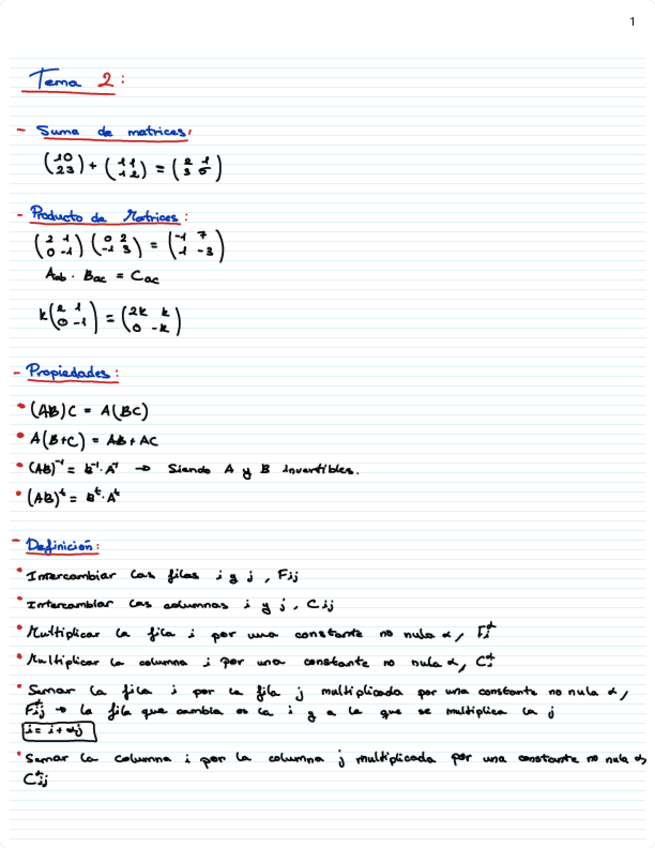 1
Tema 2:
- Suma de matrices:
(1 0 / 2 3) + (1 1 / 1 2) = (2 1 / 3 5)
- Producto de Matrices:
(2 1 / 0 -1) (0 2 / -1 3) = (-1 7 / 1 -3)
Aab · Bac = Cac
k(2 1 / 0 -1) = (2k k / 0 -k)
- Propiedades:
• (AB)C = A(BC)
• A(B+C) = AB + AC
• (AB)⁻¹ = B⁻¹·A⁻¹ → Siendo A y B invertibles.
• (AB)ᵗ = Bᵗ·Aᵗ
- Definición:
• Intercambiar las filas i y j, Fij
• Intercambiar las columnas i y j, Cij
• Multiplicar la fila i por una constante no nula α, Fᵢᵅ
• Multiplicar la columna i por una constante no nula α, Cᵢᵅ
• Sumar la fila i por la fila j multiplicada por una constante no nula α,
Fᵅij → la fila que cambia es la i y a la que se multiplica la j
i = i + αj
• Sumar la columna i por la columna j multiplicada por una constante no nula α,
Cᵅij